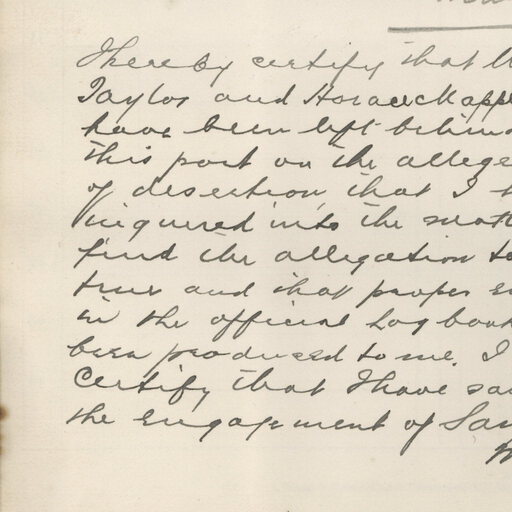 I hereby certify that W
Taylor and Horace Mappe
have been left behin
this port on the allege
of desertion, that I h
inquired into the matt
find the allegation to
true and that proper en
in the official Log book
been produced to me. I
Certify that I have san
the engagement of Sam